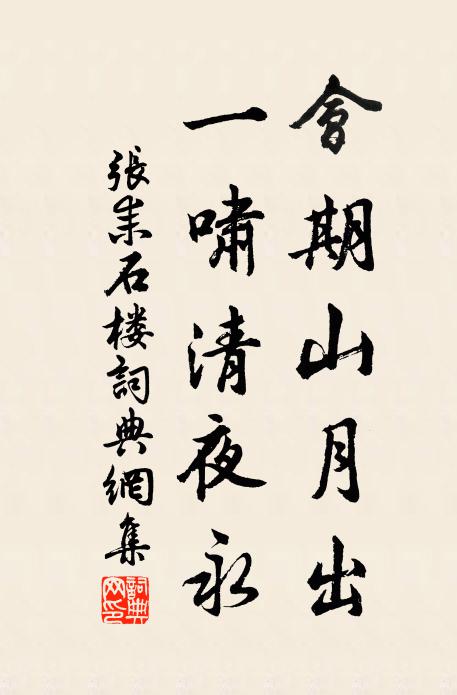 會期山月出
一嘯清夜永
張耒石楼詞典網集
詞典网印